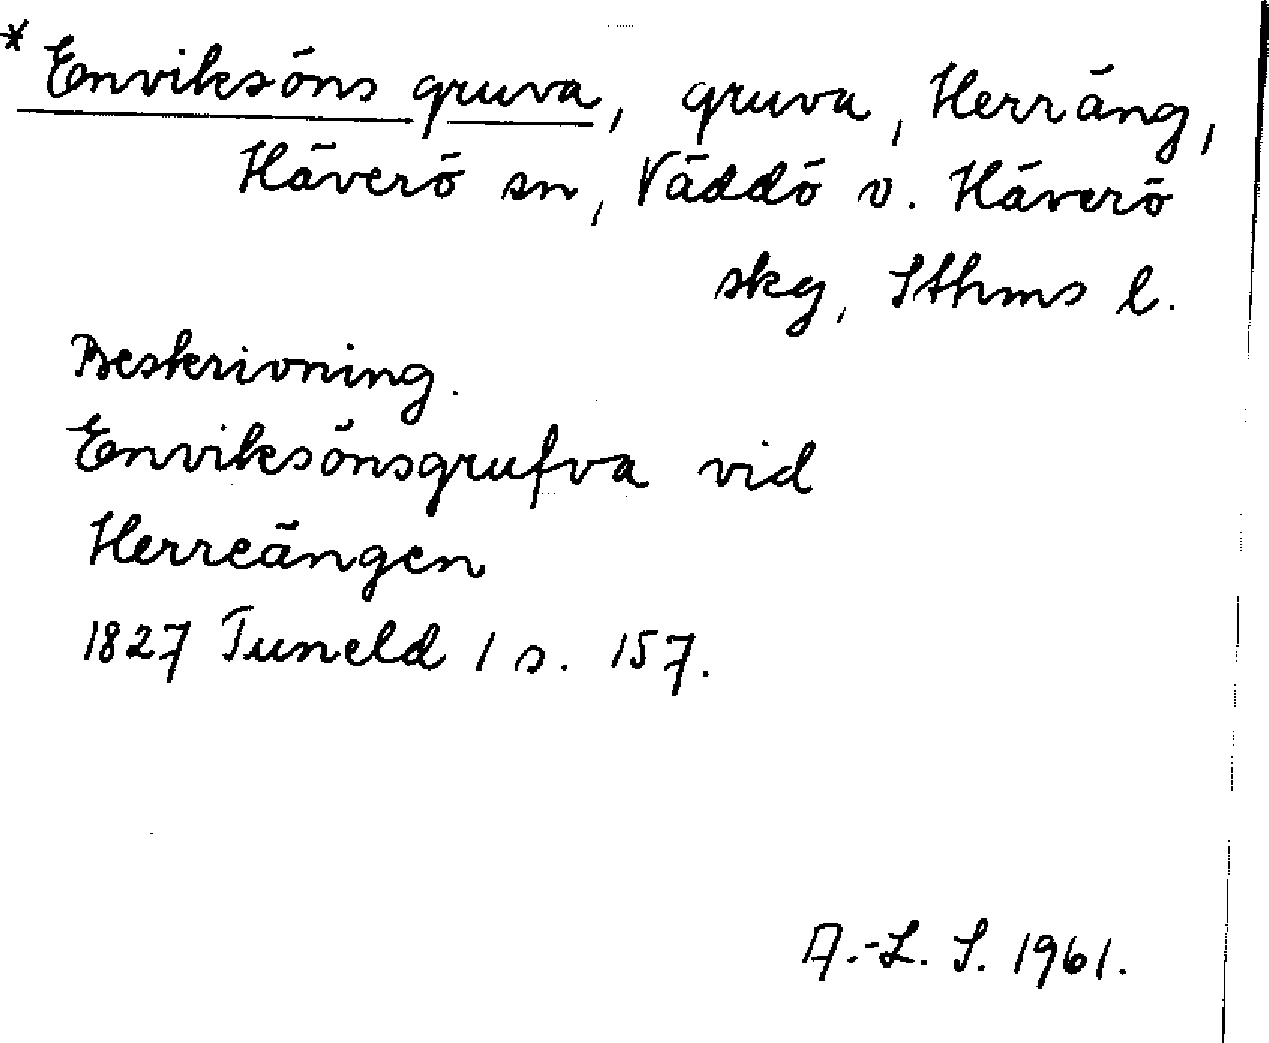 * Enviksöns gruva, gruva, Herräng,
Häverö sn, Väddö o. Häverö
skg, Sthms l.
Beskrivning.
Enviksönsgrufva vid
Herreängen
1827 Tuneld 1 s. 157.
A.-L. S. 1961.